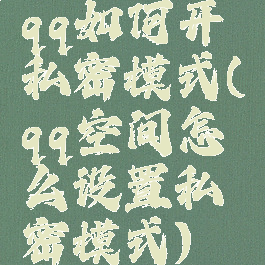 qq如何开
私密模式(
qq空间怎
么设置私
密模式)